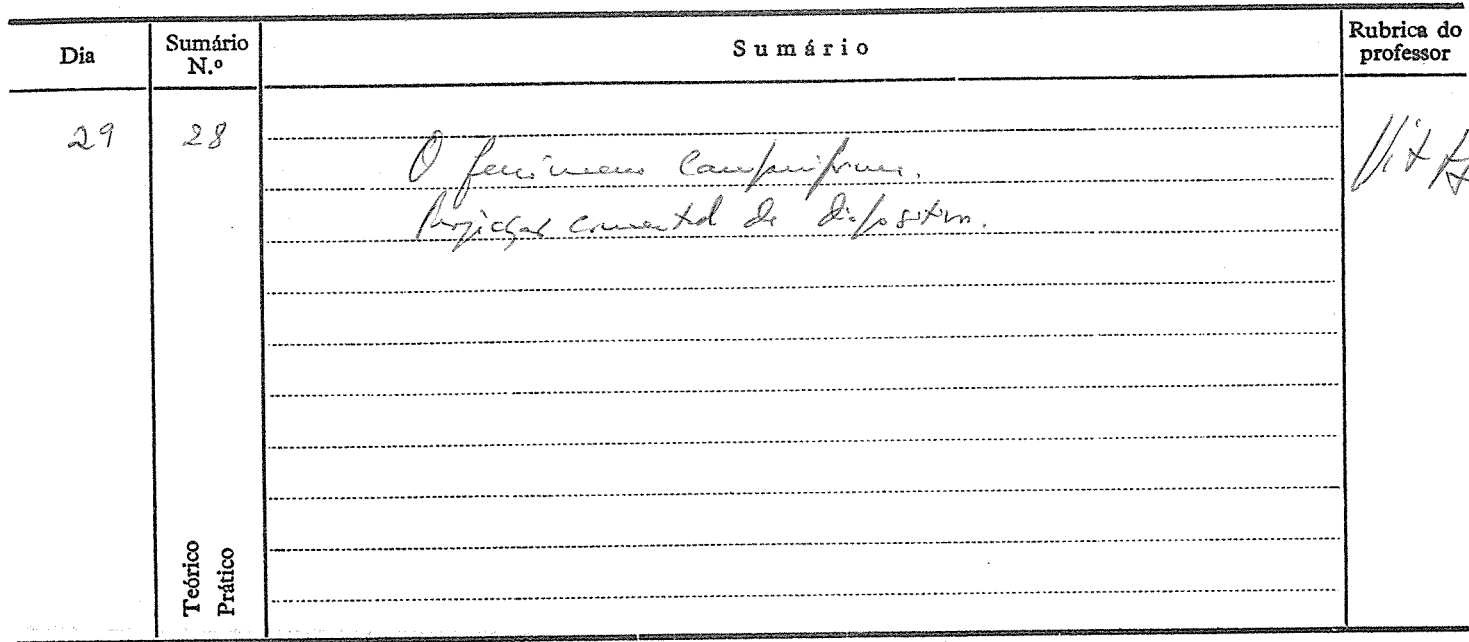 Dia
Sumário N.º
Sumário
Rubrica do professor
29
28
O fenómeno Campaniforme.
Projecção comentada de diapositivos.
Teórico
Prático